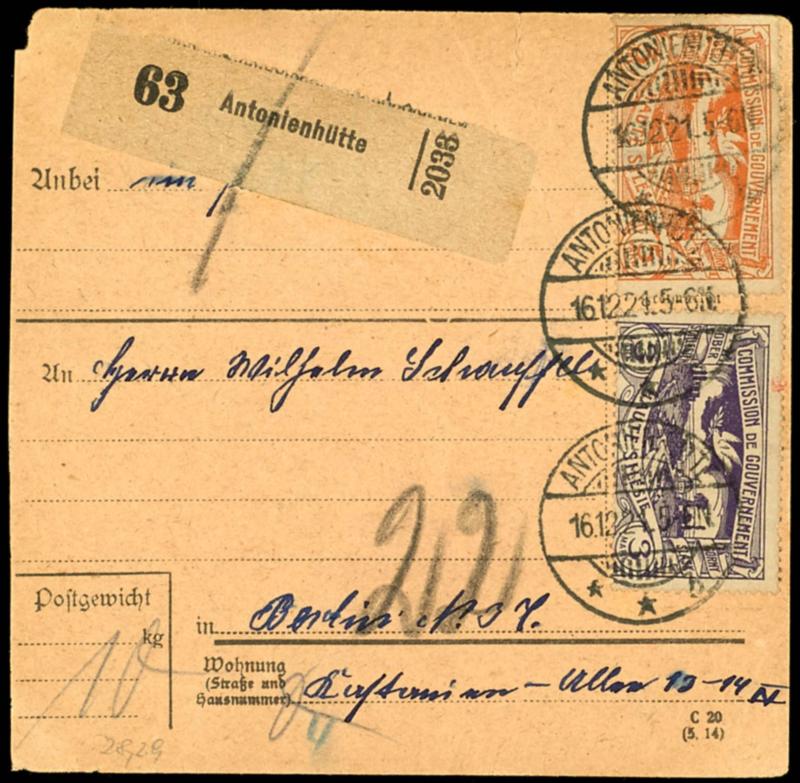 63 Antonienhütte 2033
Anbei ein
ANTONIENHÜTTE
16.12.21.5-6N.
COMMISSION DE GOUVERNEMENT
ANTONIENHÜTTE
16.12.21.5-6N.
An Herrn Wilhelm
OBER
COMMISSION DE GOUVERNEMENT
HAUTE SILESIE
3
ANTONIENHÜTTE
16.12.21.5-6N.
b
Postgewicht
kg
10
in Berlin N. 37.
Wohnung
(Straße und
Hausnummer)
Kastanien-Allee 13-14 IV
C 20
(5. 14)
28,29